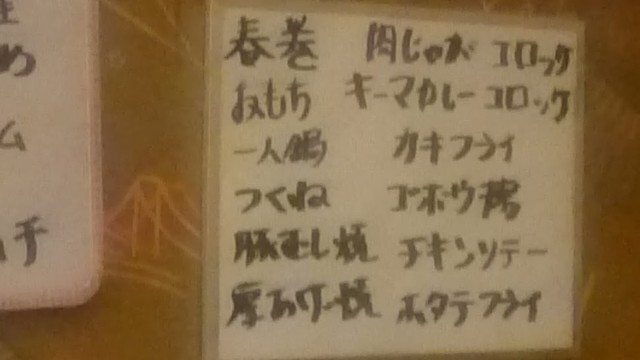 春巻 肉じゃがコロッケ
おもち キーマカレーコロッケ
一人鍋 カキフライ
つくね ゴボウ鶏
豚むし焼 チキンソテー
厚あげ焼 ホタテフライ
め
ム
チ